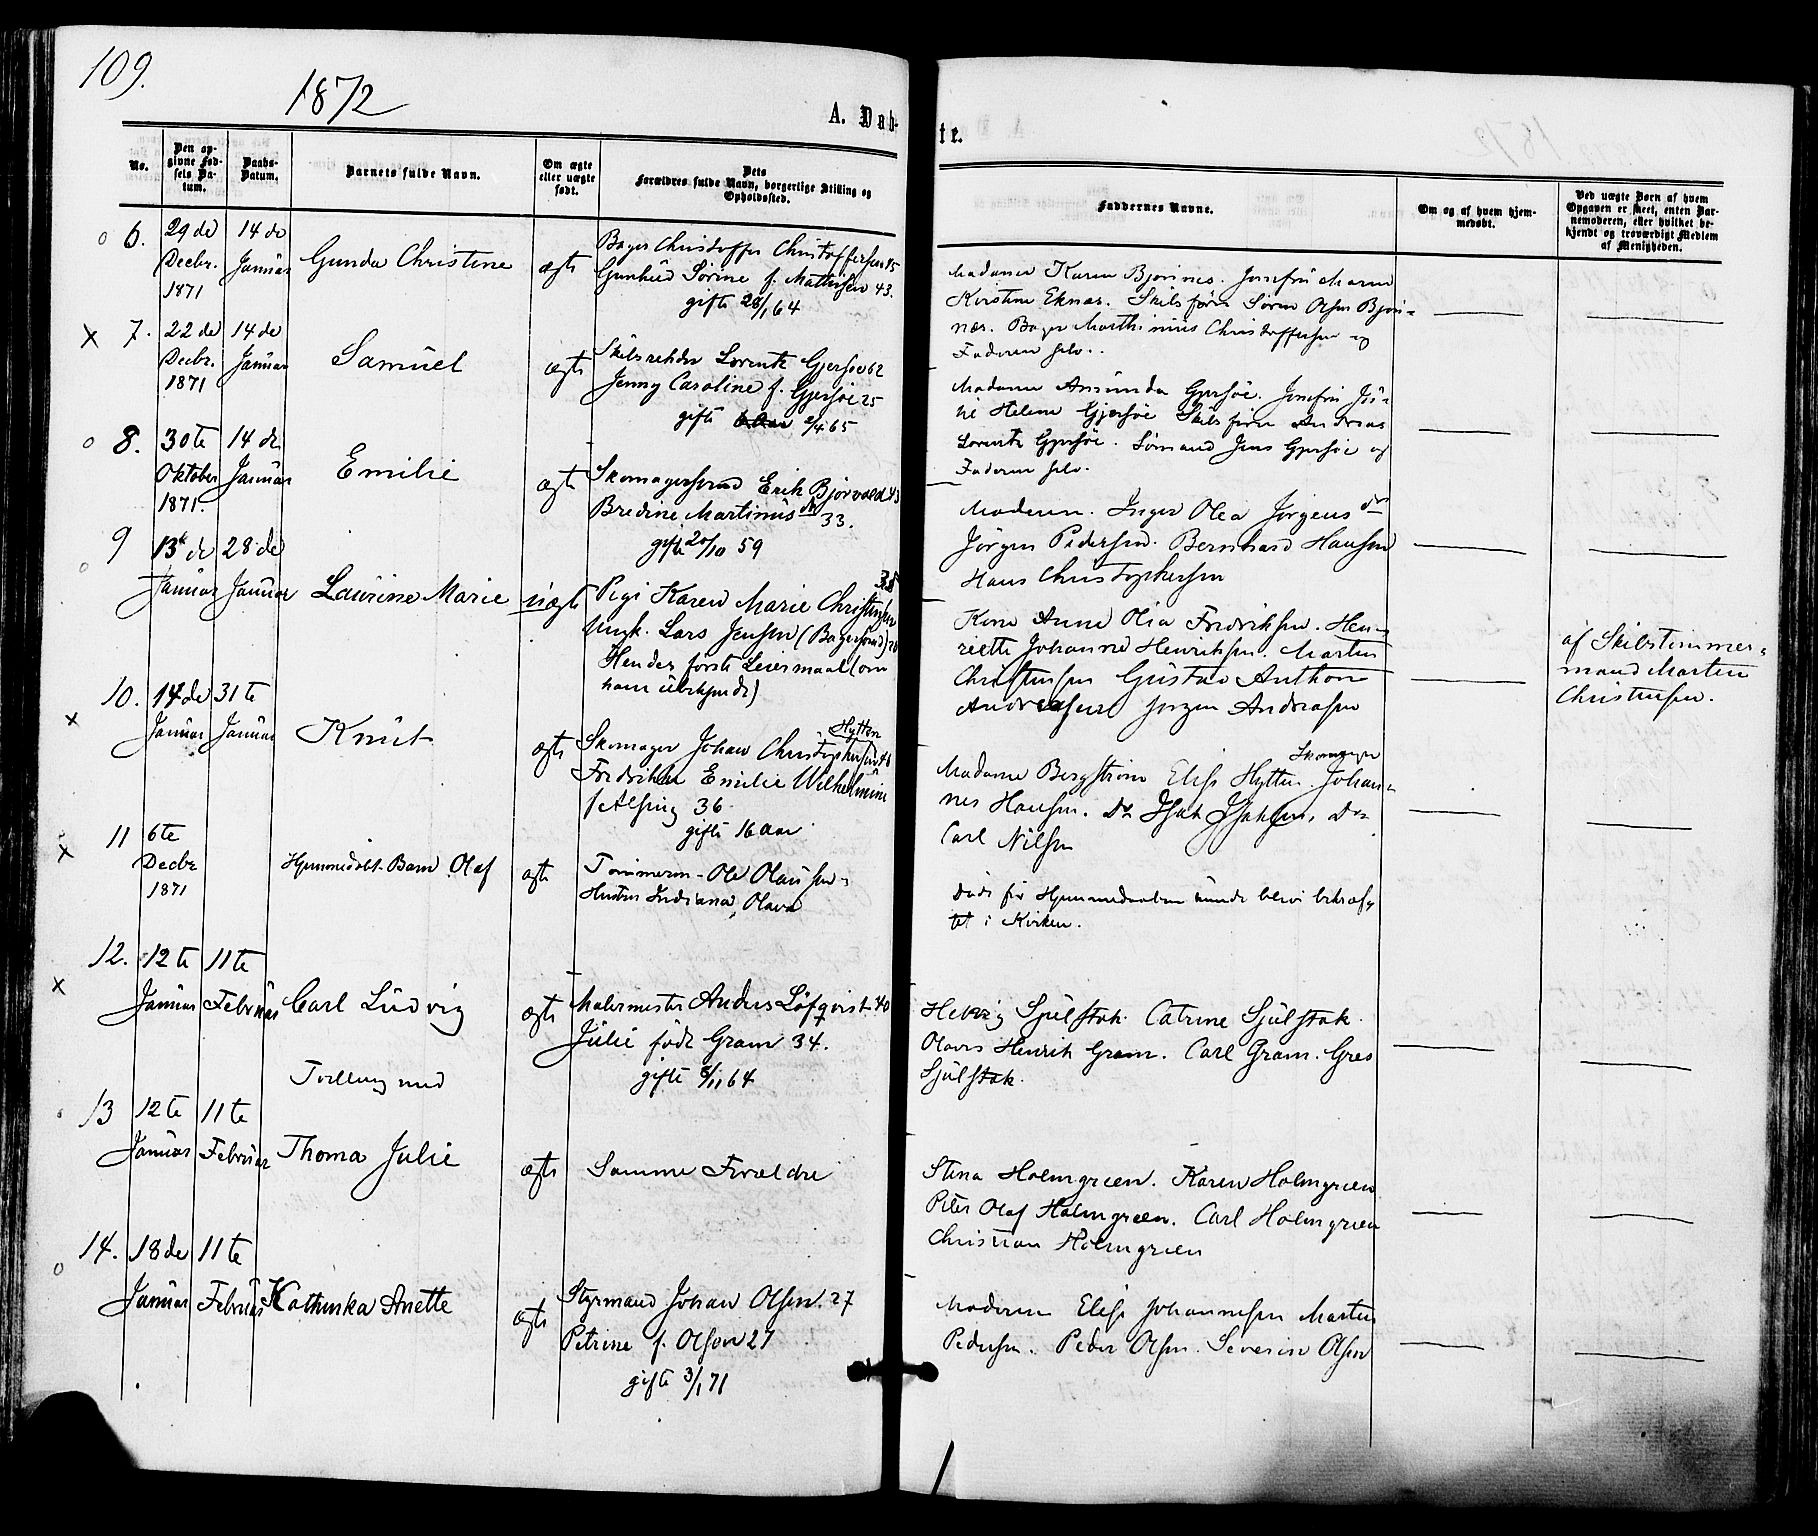 109.
1872
A. Døb-
te.
No.
Den op-
givne Fød-
sels Da-
tum.
Daabs-
Datum.
Barnets fulde Navn.
Om ægte
eller uægte
født.
Dets
Forældres fulde Navn, borgerlige Stilling og
Opholdssted.
Faddernes Navne.
Om og af hvem hjem-
medøbt.
Ved uægte Børn af hvem
Opgaven er skeet, enten Bar-
nemoderen, eller hvilket be-
kjendt og troværdigt Medlem
af Menigheden.
6.
29 de
Decbr.
1871
14 de
Januar
Gunda Christine
ægte
Bager Christoffer Christoffersen 45
Gunhild Sørine f. Mathisen 43.
gifte 28/1 64
Madame Karen Bjørnes. Jomfru Maren
Kirstine Eknes. Skibsfører Søren Olsen Bjør-
nær. Bager Marthinius Christoffersen og
Faderen selv.
x 7.
22 de
Decbr.
1871
14 de
Januar
Samuel
ægte
Skibsrehder Lorentz Gjersøe 62
Jenny Caroline f. Gjersøe 25
gifte 2/4 65
Madame Amunda Gjersøe. Jomfru Ju-
lie Helene Gjersøe Skibsfører Andreas
Lorentz Gjersøe. Sømand Jens Gjersøe og
Faderen selv.
8.
30 te
Oktober
1871.
14 de
Januar
Emilie
ægte
Skomagersvend Erik Bjørvold 43
Bredine Martinus dr 33.
gifte 20/10 59
Moderen. Inger Olea Jørgens dr
Jørgen Pedersen. Bernhard Hansen
Hans Christophersen
9
13 de
Januar
28 de
Januar
Laurine Marie
uægte
Pige Karen Marie Christensen 35
Ungk. Lars Jensen (Bagersvend) 28
Hendes første Leiermaal (om
ham ubekjendt)
Kone Anne Olea Fredriksen. Hen-
riette Johanne Henriksen. Martin
Christensen Gustav Anthon
Andreasen Jørgen Andreasen
af Skibstømmer-
mand Marten
Christensen.
x 10.
14 de
Januar
31 te
Januar
Knut
ægte
Hytten
Skomager Johan Christophersen 46
Fredrikke Emilie Wilhelmine
f. Alsing 36
gifte 16 Aar
Skomager
Madame Bergstrøm Elise Hytten. Johan-
nes Hansen. Do Isak Isaksen, Do
Carl Nilsen
x 11
6 te
Decbr
1871
Hjemmedøbt Barn Olaf
ægte
Tømmerm. Ole Olausen
Hustru Indiana Olava
Døde før Hjemmedaaben kunde blive bekræf-
tet i Kirken.
x 12.
12 te
Januar
11 te
Februar
Carl Ludvig
ægte
Malermester Anders Löfqvist 40
Julie født Gram 34.
gifte 8/11 64
Hedvig Sjulstok. Catrine Sjulstok.
Olaus Henrik Gram. Carl Gram. Gres
Sjulstok.
Tvilling med
13
12 te
Januar
11 te
Februar
Thoma Julie
ægte
Samme Forældre
Stina Holmgreen. Karen Holmgreen
Peter Olaf Holmgreen. Carl Holmgreen
Christian Holmgreen
14.
18 de
Januar
11 te
Februar
Kathinka Anette
ægte
Styrmand Johan Olsen. 27
Petrine f. Olsen 27
gifte 3/1 71
Moderen Elise Johannesen Marten
Pedersen. Peder Olsen. Severin Olsen